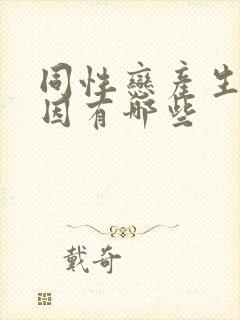 同性戀產生
因有哪些
戴奇